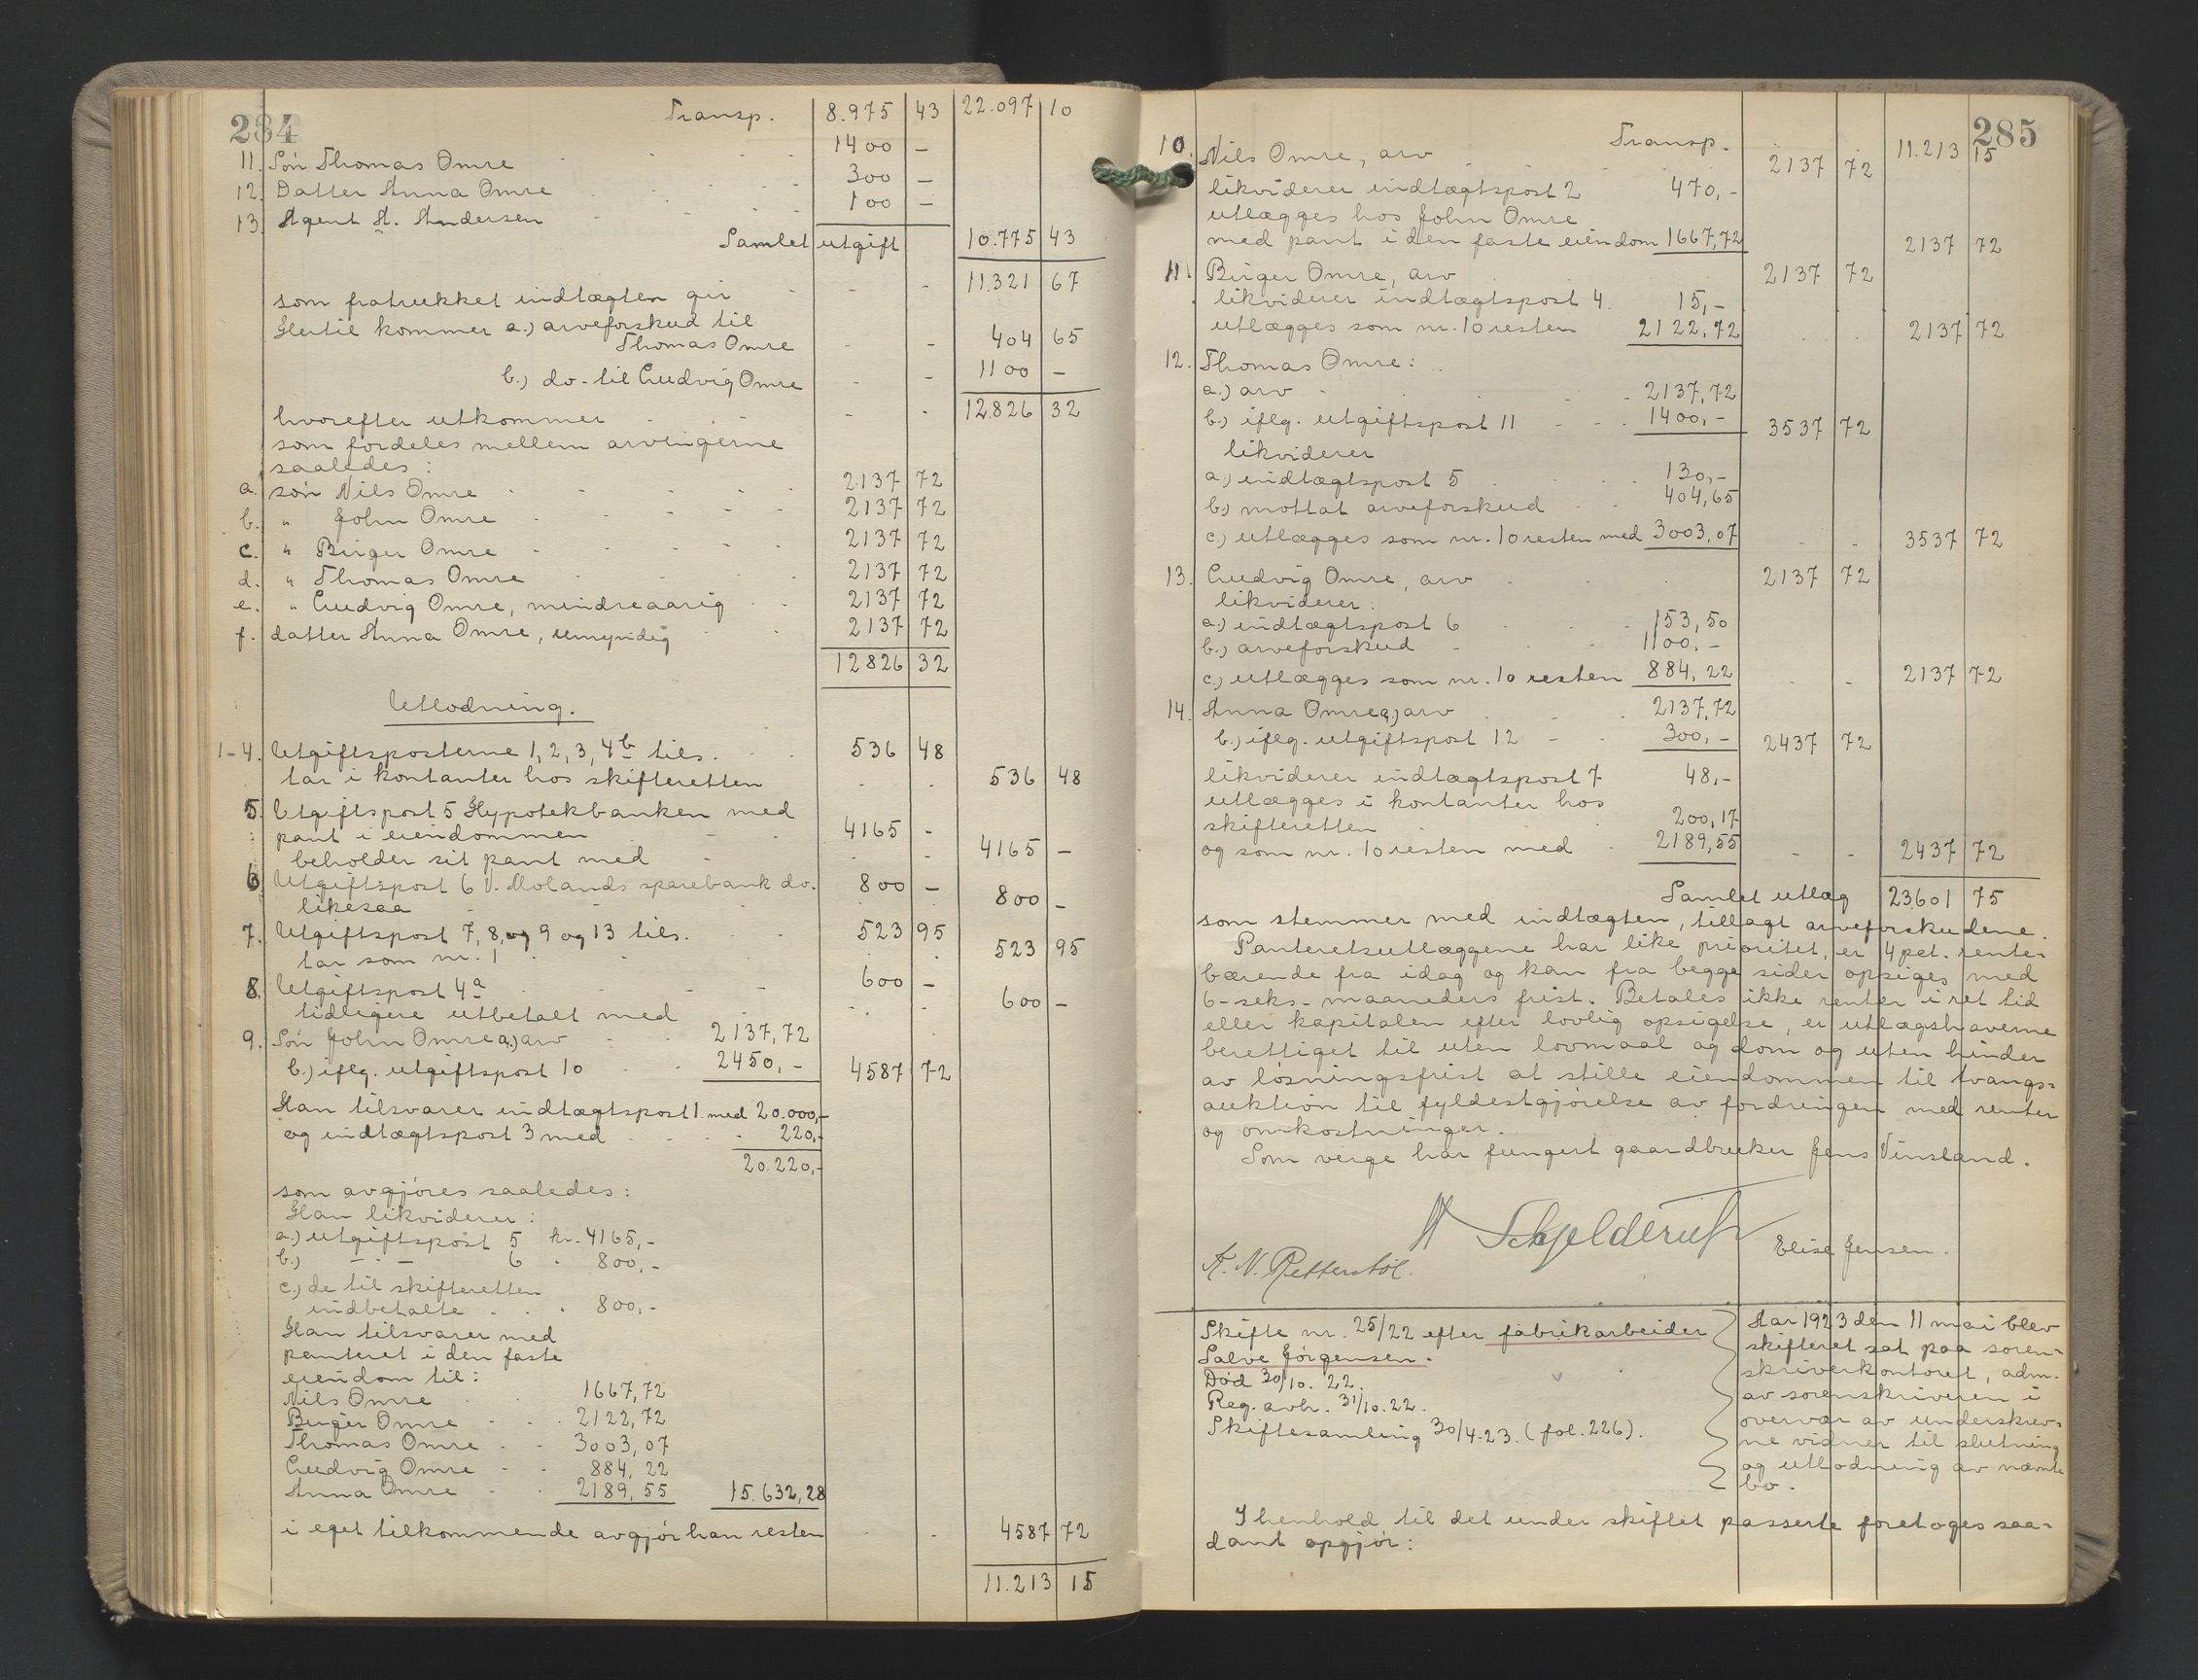 284
Transp. 8.975 43 22.097 10
11. Søn Thomas Omre 1400 –
12. Datter Anna Omre 300 –
13. Agent A. Andersen 100 –
Samlet utgift 10.775 43
som fratrukket indtægten gir 11.321 67
Hertil kommer a.) arveforskud til
Thomas Omre 404 65
b.) do - til Ludvig Omre 1100 –
hvorefter utkommer 12.826 32
som fordeles mellem arvingerne
saaledes:
a. søn Nils Omre 2137 72
b. " John Omre 2137 72
c. " Birger Omre 2137 72
d. " Thomas Omre 2137 72
e. " Ludvig Omre, mindreaarig 2137 72
f. datter Anna Omre, umyndig 2137 72
12826 32
Utlodning.
1-4. Utgiftsposterne 1, 2, 3, 4b tils. 536 48
tar i kontanter hos skifteretten 536 48
5. Utgiftspost 5 Hypotekbanken med
pant i eiendommen 4165 –
beholder sit pant med 4165 –
6. Utgiftspost 6 V. Molands sparebank do. 800 –
likesaa 800 –
7. Utgiftspost 7, 8, og 9 og 13 tils. 523 95
tar som nr. 1 523 95
8. Utgiftspost 4a 600 –
tidligere utbetalt med 600 –
9. Søn John Omre a.) arv 2137,72
b.) iflg. utgiftspost 10 2450,- 4587 72
Han tilsvarer indtægtspost 1. med 20.000,-
og indtægtspost 3 med 220,-
20.220,-
som avgjøres saaledes:
Han likviderer:
a.) utgiftspost 5 kr. 4165,-
b.) – " – 6 . 800,-
c.) de til skifteretten
indbetalte . . . 800,-
Han tilsvarer med
panteret i den faste
eiendom til:
Nils Omre 1667,72
Birger Omre 2122,72
Thomas Omre 3003,07
Ludvig Omre 884,22
Anna Omre 2189,55 15.632,28
i eget tilkommende avgjør han resten 4587 72
11.213 15
285
Transp. 11.213 15
10. Nils Omre, arv 2137 72
likviderer indtægtspost 2 470,-
utlægges hos John Omre
med pant i den faste eiendom 1667,72 2137 72
11. Birger Omre, arv 2137 72
likviderer indtægtspost 4. 15,-
utlægges som nr. 10 resten 2122,72 2137 72
12. Thomas Omre:
a.) arv 2137,72
b.) iflg. utgiftspost 11 1400,- 3537 72
likviderer
a.) indtægtspost 5 130,-
b.) mottat arveforskud 404,65
c.) utlægges som nr. 10 resten med 3003,07 3537 72
13. Ludvig Omre, arv 2137 72
likviderer:
a.) indtægtspost 6 153,50
b.) arveforskud 1100,-
c.) utlægges som nr. 10 resten 884,22 2137 72
14. Anna Omre a.) arv 2137,72
b.) iflg. utgiftspost 12 300,- 2437 72
likviderer indtægtspost 7 48,-
utlægges i kontanter hos
skifteretten 200,17
og som nr. 10 resten med 2189,55 2437 72
Samlet utlæg 23.601 75
som stemmer med indtægten, tillagt arveforskudene.
Panteretsutlæggene har like prioritet, er 4 pct. rente-
bærende fra idag og kan fra begge sider opsiges med
6-seks-maaneders frist. Betales ikke renter i ret tid
eller kapitalen efter lovlig opsigelse, er utlægshaverne
berettiget til uten lovmaal og dom og uten hinder
av løsningsfrist at stille eiendommen til tvangs=
auktion til fyldestgjørelse av fordringen med renter
og omkostninger.
Som verge har fungert gaardbruker Jens Vinsland.
A Schjelderup
K. N. Retterstøl. Elise Jensen.
Skifte nr. 25/22 efter fabrikarbeider
Salve Jørgensen.
Død 30/10. 22.
Reg. avh. 31/10. 22.
Skiftesamling 30/4-23. (fol. 226).
Aar 1923 den 11 mai blev
skifteret sat paa soren-
skriverkontoret, adm.
av sorenskriveren i
overvær av underskrev=
ne vidner til slutning
og utlodning av nævnte
bo.
I henhold til det under skiftet passerte foretoges saa-
dant opgjør: